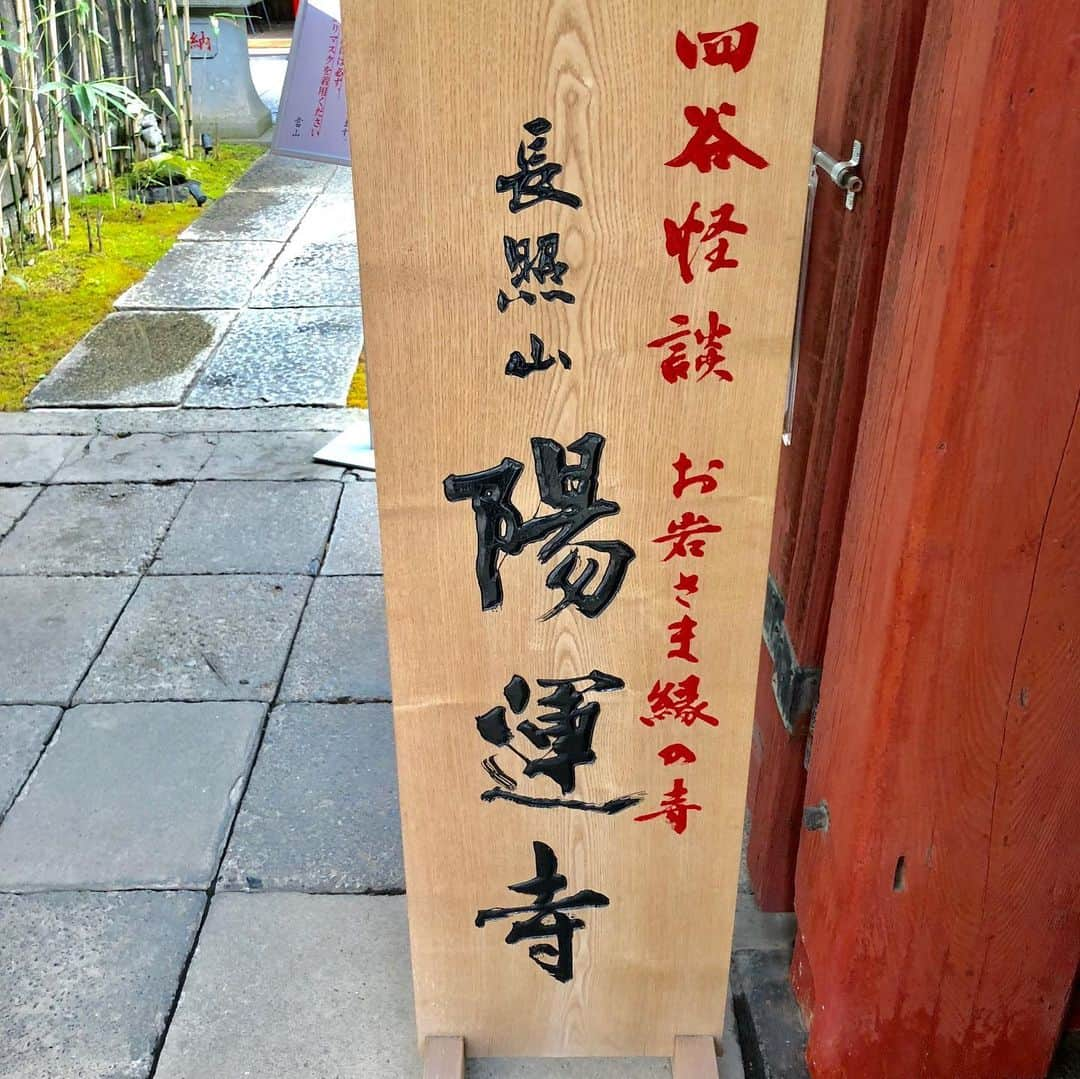 四谷怪談 お岩さま縁の寺
長照山
陽運寺
マスクを着用ください
当山
納